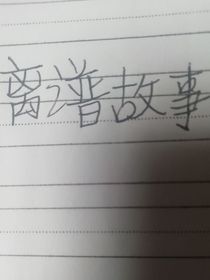 离谱故事